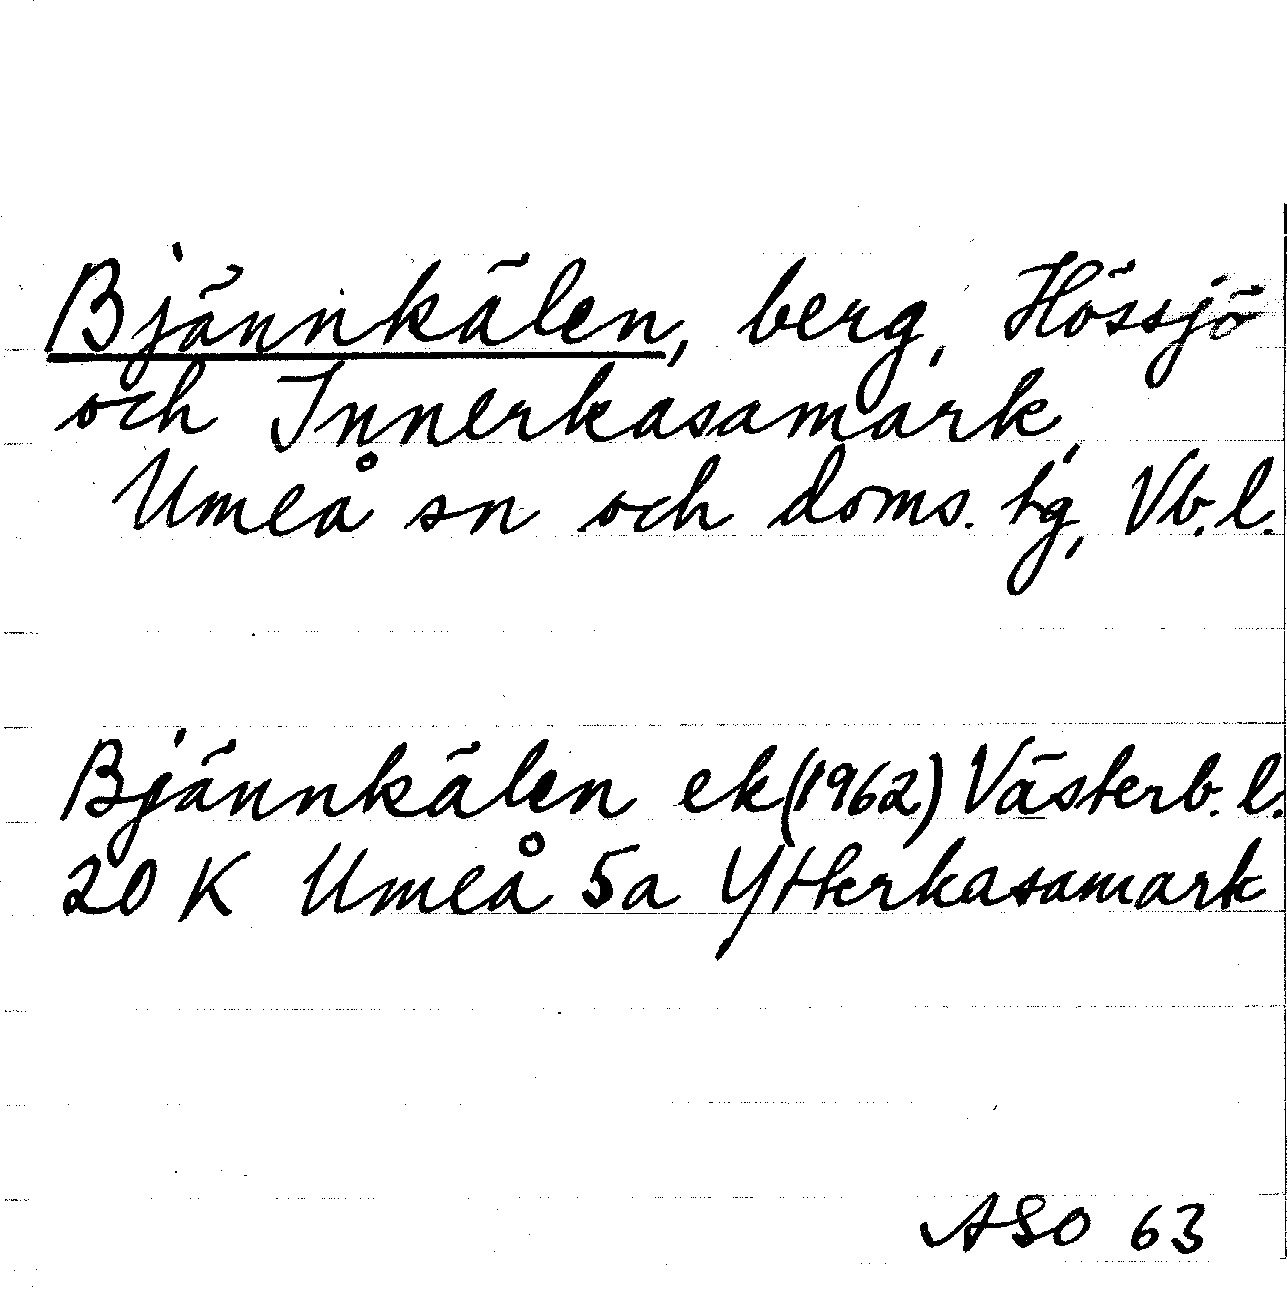 Bjännkälen, berg, Hössjö
och Innerkasamark,
Umeå sn och doms. tg, Vb.l.
Bjännkälen ek (1962) Västerb. l.
20 K Umeå 5a Ytterkasamark
ASO 63